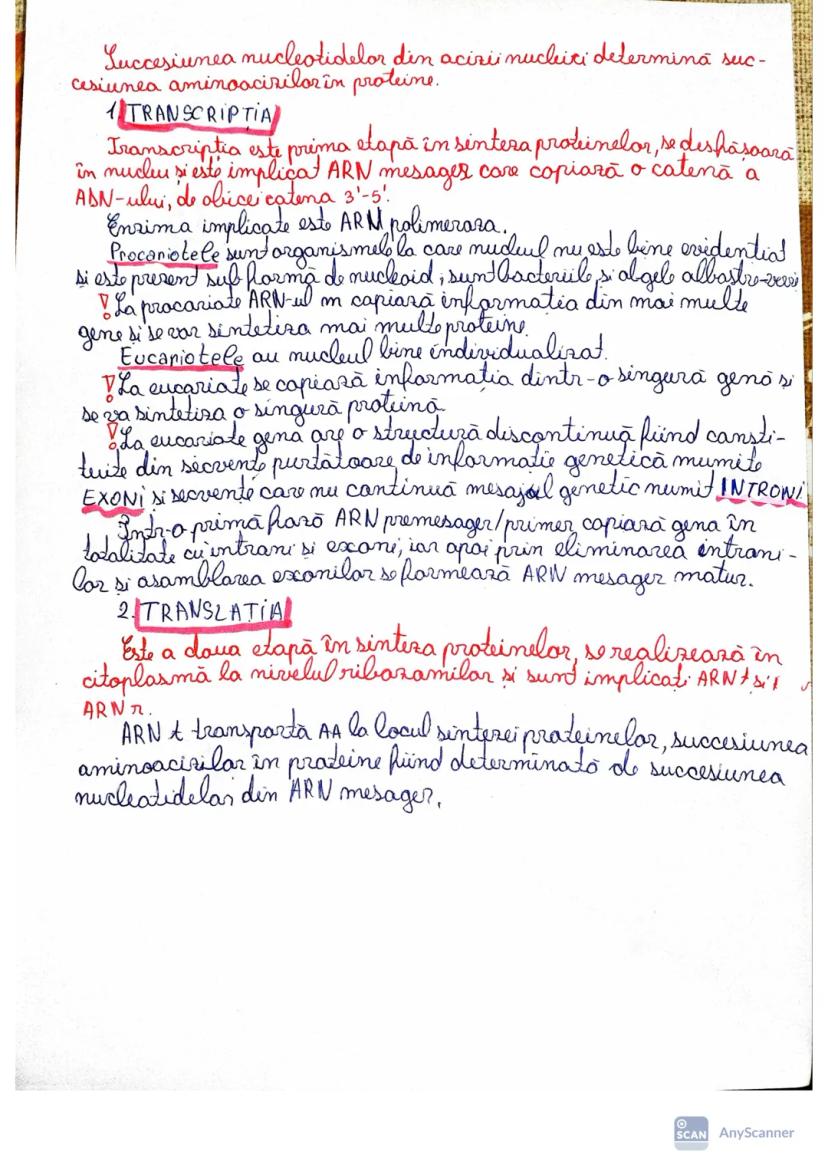 Succesiunea nucleotidelor din acizii nucleici determină suc-
cesiunea aminoacizilor în proteine.
1. TRANSCRIPȚIA
Transcripția este prima etapă în sinteza proteinelor, se desfășoară
în nucleu și este implicat ARN mesager care copiază o catenă a
ADN-ului, de obicei catena 3'-5'.
Enzima implicate este ARN polimeraza.
Procariotele sunt organismele la care nucleul nu este bine evidentiat
si este prezent sub formă de nucleoid, sunt bacteriile si algele albastre-verzi
! La procariote ARN-ul m copiază informatia din mai multe
gene si se vor sintetiza mai multe proteine.
Eucariotele au nucleul bine individualizat.
! La eucariate se copiază informatia dintr-o singură genă si
se va sintetiza o singură proteină
! La eucariote gena are o structură discontinuă fiind consti-
tuite din secvente purtătoare de informatie genetică numite
EXONI si secvente care nu continuă mesajul genetic numit INTRONI
Într-o primă fază ARN premesager/primer copiază gena în
totalitate cu introni si exoni, iar apoi prin eliminarea introni-
lor si asamblarea exonilor se formează ARN mesager matur.
2. TRANSLATIA
Este a doua etapă în sinteza proteinelor, se realizează în
citoplasmă la nivelul ribozomilor si sunt implicati ARN t si
ARN r.
ARN t transportă AA la locul sintezei proteinelor, succesiunea
aminoacizilor în proteine fiind determinată de succesiunea
nucleotidelor din ARN mesager.
SCAN AnyScanner